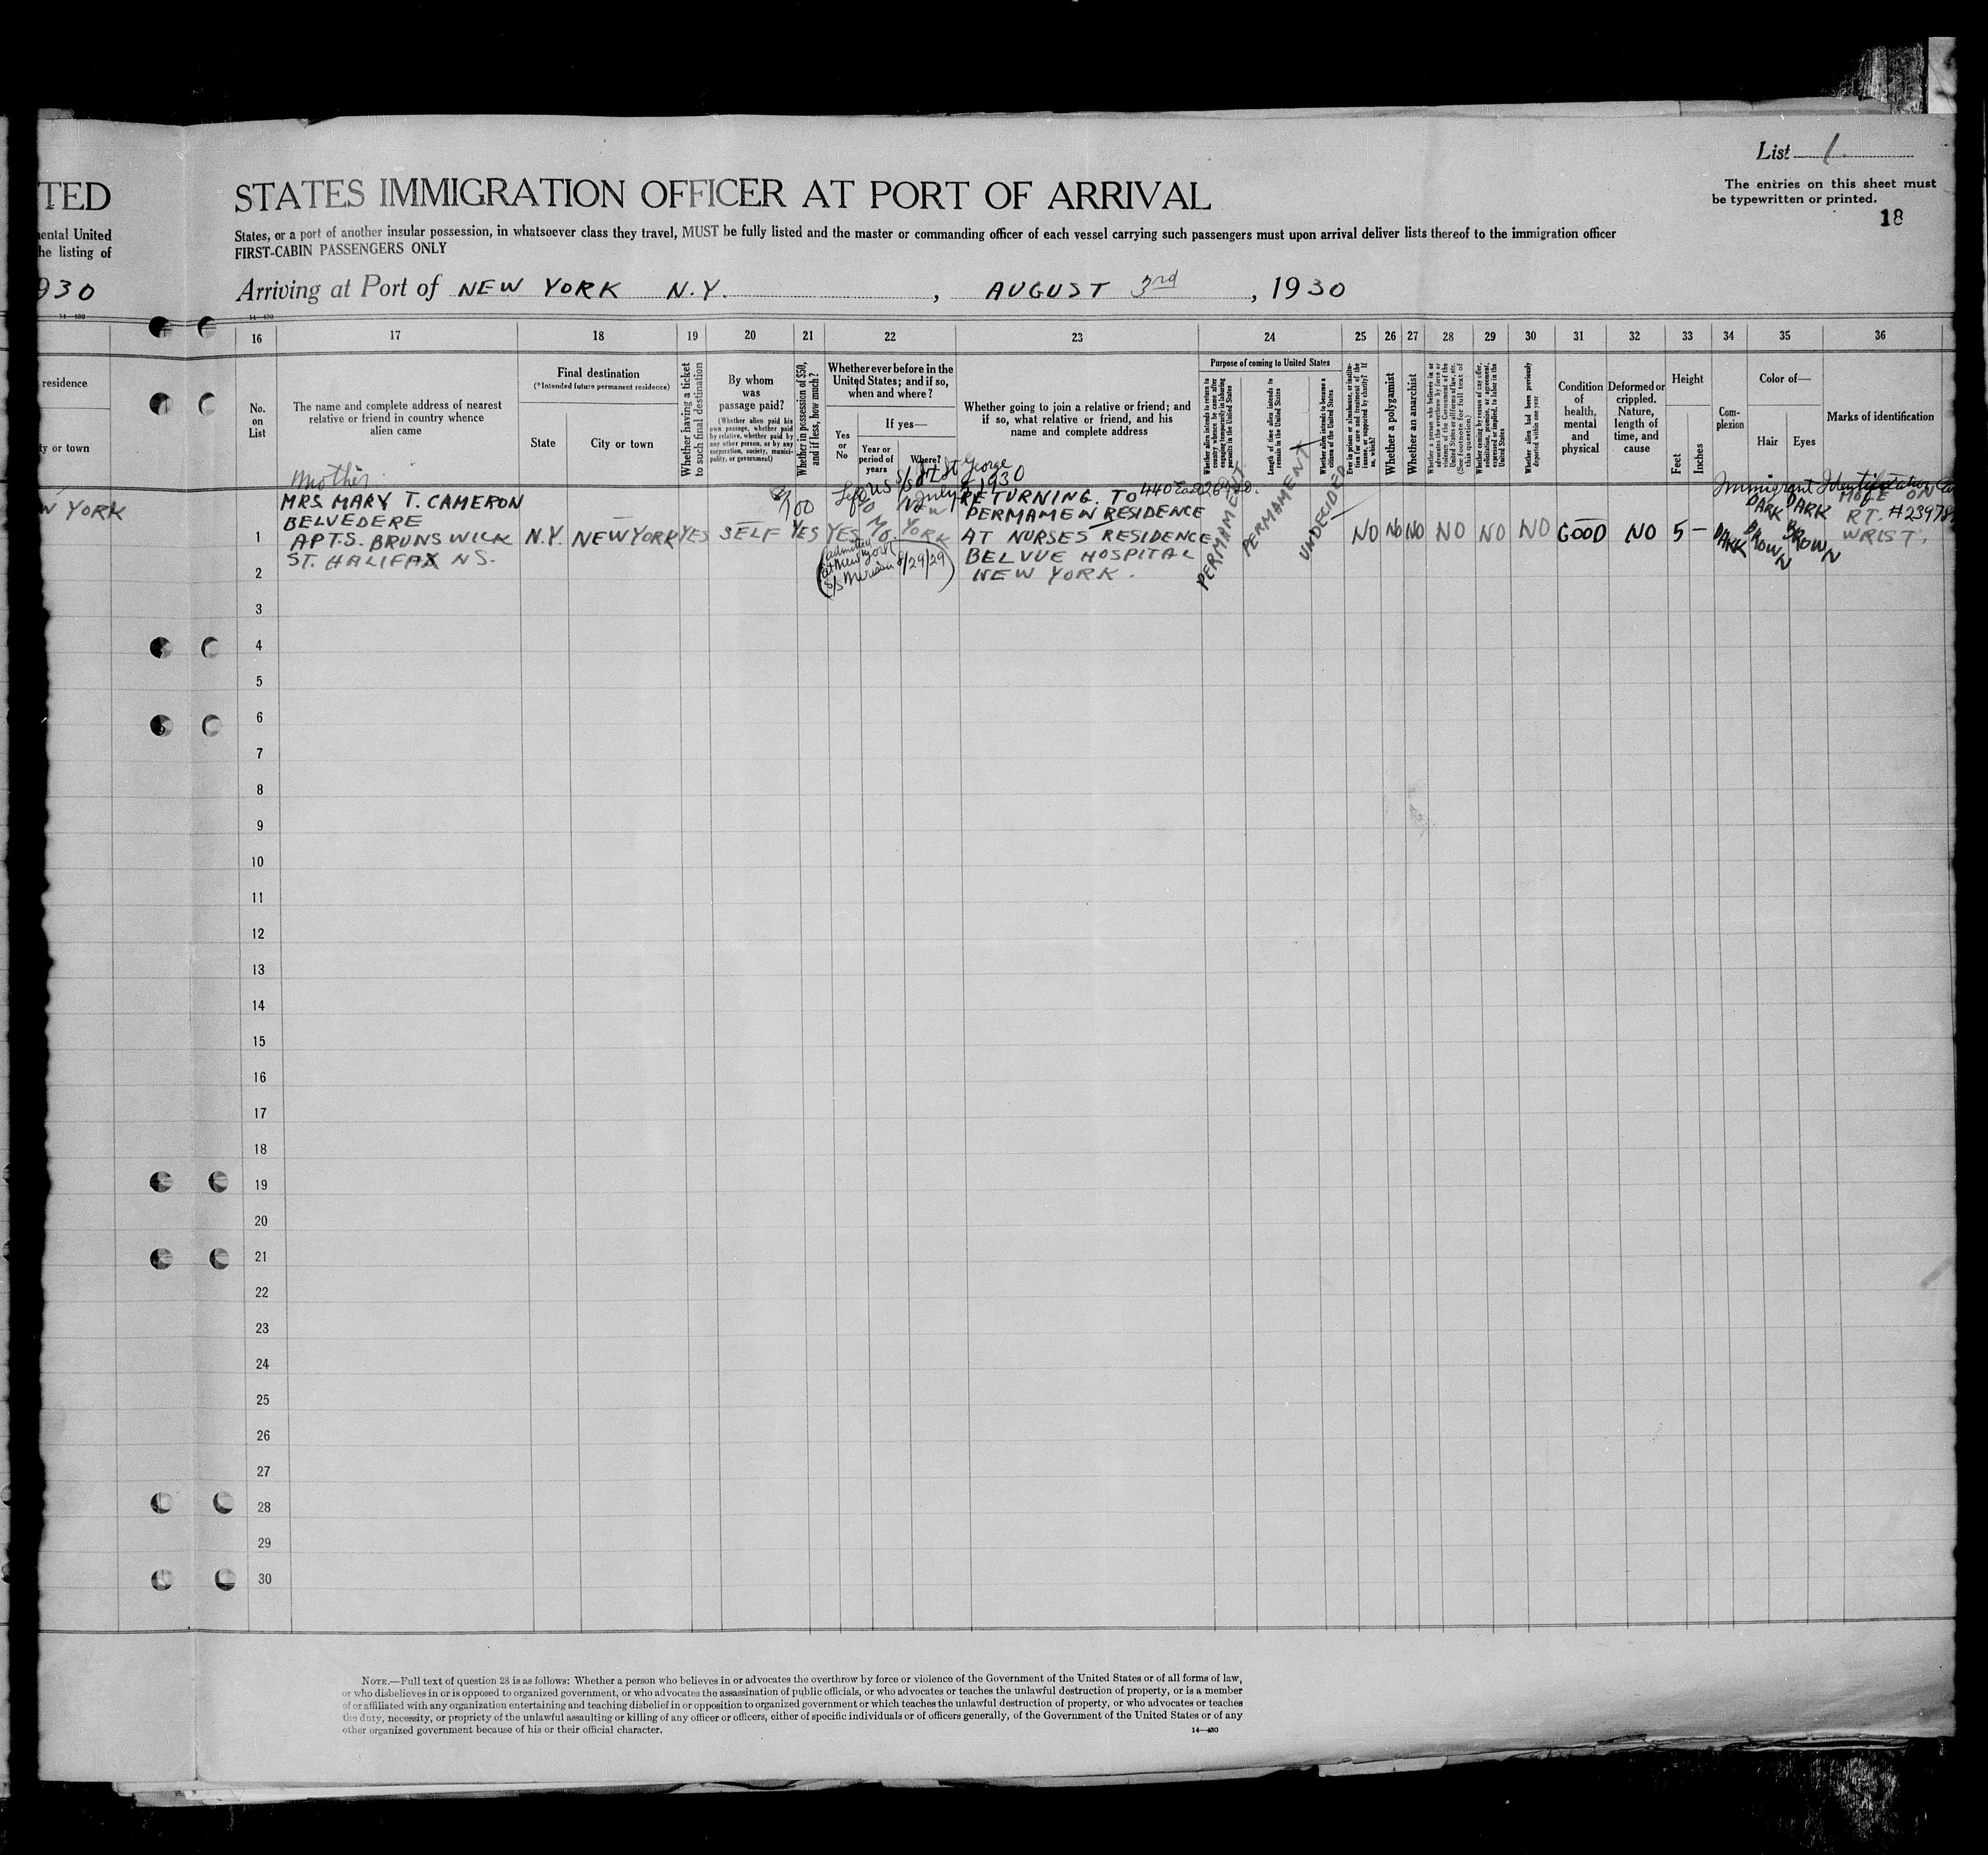 List 1
The entries on this sheet must
be typewritten or printed.
18
TED STATES IMMIGRATION OFFICER AT PORT OF ARRIVAL
ental United
he listing of
States, or a port of another insular possession, in whatsoever class they travel, MUST be fully listed and the master or commanding officer of each vessel carrying such passengers must upon arrival deliver lists thereof to the immigration officer
FIRST-CABIN PASSENGERS ONLY
930
Arriving at Port of NEW YORK N.Y. , AUGUST 3rd , 1930
14—430
16 17 18 19 20 21 22 23 24 25 26 27 28 29 30 31 32 33 34 35 36
residence
ty or town
W YORK
No.
on
List
The name and complete address of nearest
relative or friend in country whence
alien came
Final destination
(*Intended future permanent residence)
State
City or town
Whether having a ticket
to such final destination
By whom
was
passage paid?
(Whether alien paid his
own passage, whether paid
by relative, whether paid by
any other person, or by any
corporation, society, munici-
pality, or government)
Whether in possession of $50,
and if less, how much?
Whether ever before in the
United States; and if so,
when and where?
If yes—
Yes
or
No
Year or
period of
years
Where?
Whether going to join a relative or friend; and
if so, what relative or friend, and his
name and complete address
Purpose of coming to United States
Whether alien intends to return to
country whence he came after
engaging temporarily in laboring
pursuits in the United States
Length of time alien intends to
remain in the United States
Whether alien intends to become a
citizen of the United States
Ever in prison or almshouse, or institu-
tion for care and treatment of the
insane, or supported by charity? If
so, which?
Whether a polygamist
Whether an anarchist
Whether a person who believes in or
advocates the overthrow by force or
violence of the Government of the
United States or all forms of law, etc.
(See footnote for full text of
this question)
Whether coming by reason of any offer,
solicitation, promise, or agreement,
expressed or implied, to labor in the
United States
Whether alien had been previously
deported within one year
Condition
of
health,
mental
and
physical
Deformed or
crippled.
Nature,
length of
time, and
cause
Height
Feet
Inches
Com-
plexion
Color of—
Hair
Eyes
Marks of identification
Mother
MRS. MARY T. CAMERON
BELVEDERE
APTS. BRUNSWICK
ST. HALIFAX NS.
N.Y.
NEW YORK
YES
SELF
700
YES
YES
Left US S/S Ft St George
July 1930
MO.
YORK
(admitted
at New York
8/29/29)
RETURNING. TO 440 East 26
PERMAMEN RESIDENCE
AT NURSES RESIDENCE,
BELVUE HOSPITAL
NEW YORK.
PERMAMENT
PERMAMENT
UNDECIDED
NO
NO
NO
NO
NO
NO
GOOD
NO
5 —
DARK
DARK
BROWN
DARK
BROWN
Immigrant Identification
MOLE ON
RT. #23978
WRIST,
1
2
3
4
5
6
7
8
9
10
11
12
13
14
15
16
17
18
19
20
21
22
23
24
25
26
27
28
29
30
NOTE.—Full text of question 28 is as follows: Whether a person who believes in or advocates the overthrow by force or violence of the Government of the United States or of all forms of law,
or who disbelieves in or is opposed to organized government, or who advocates the assassination of public officials, or who advocates or teaches the unlawful destruction of property, or is a member
of or affiliated with any organization entertaining and teaching disbelief in or opposition to organized government or which teaches the unlawful destruction of property, or who advocates or teaches
the duty, necessity, or propriety of the unlawful assaulting or killing of any officer or officers, either of specific individuals or of officers generally, of the Government of the United States or of any
other organized government because of his or their official character.
14—430